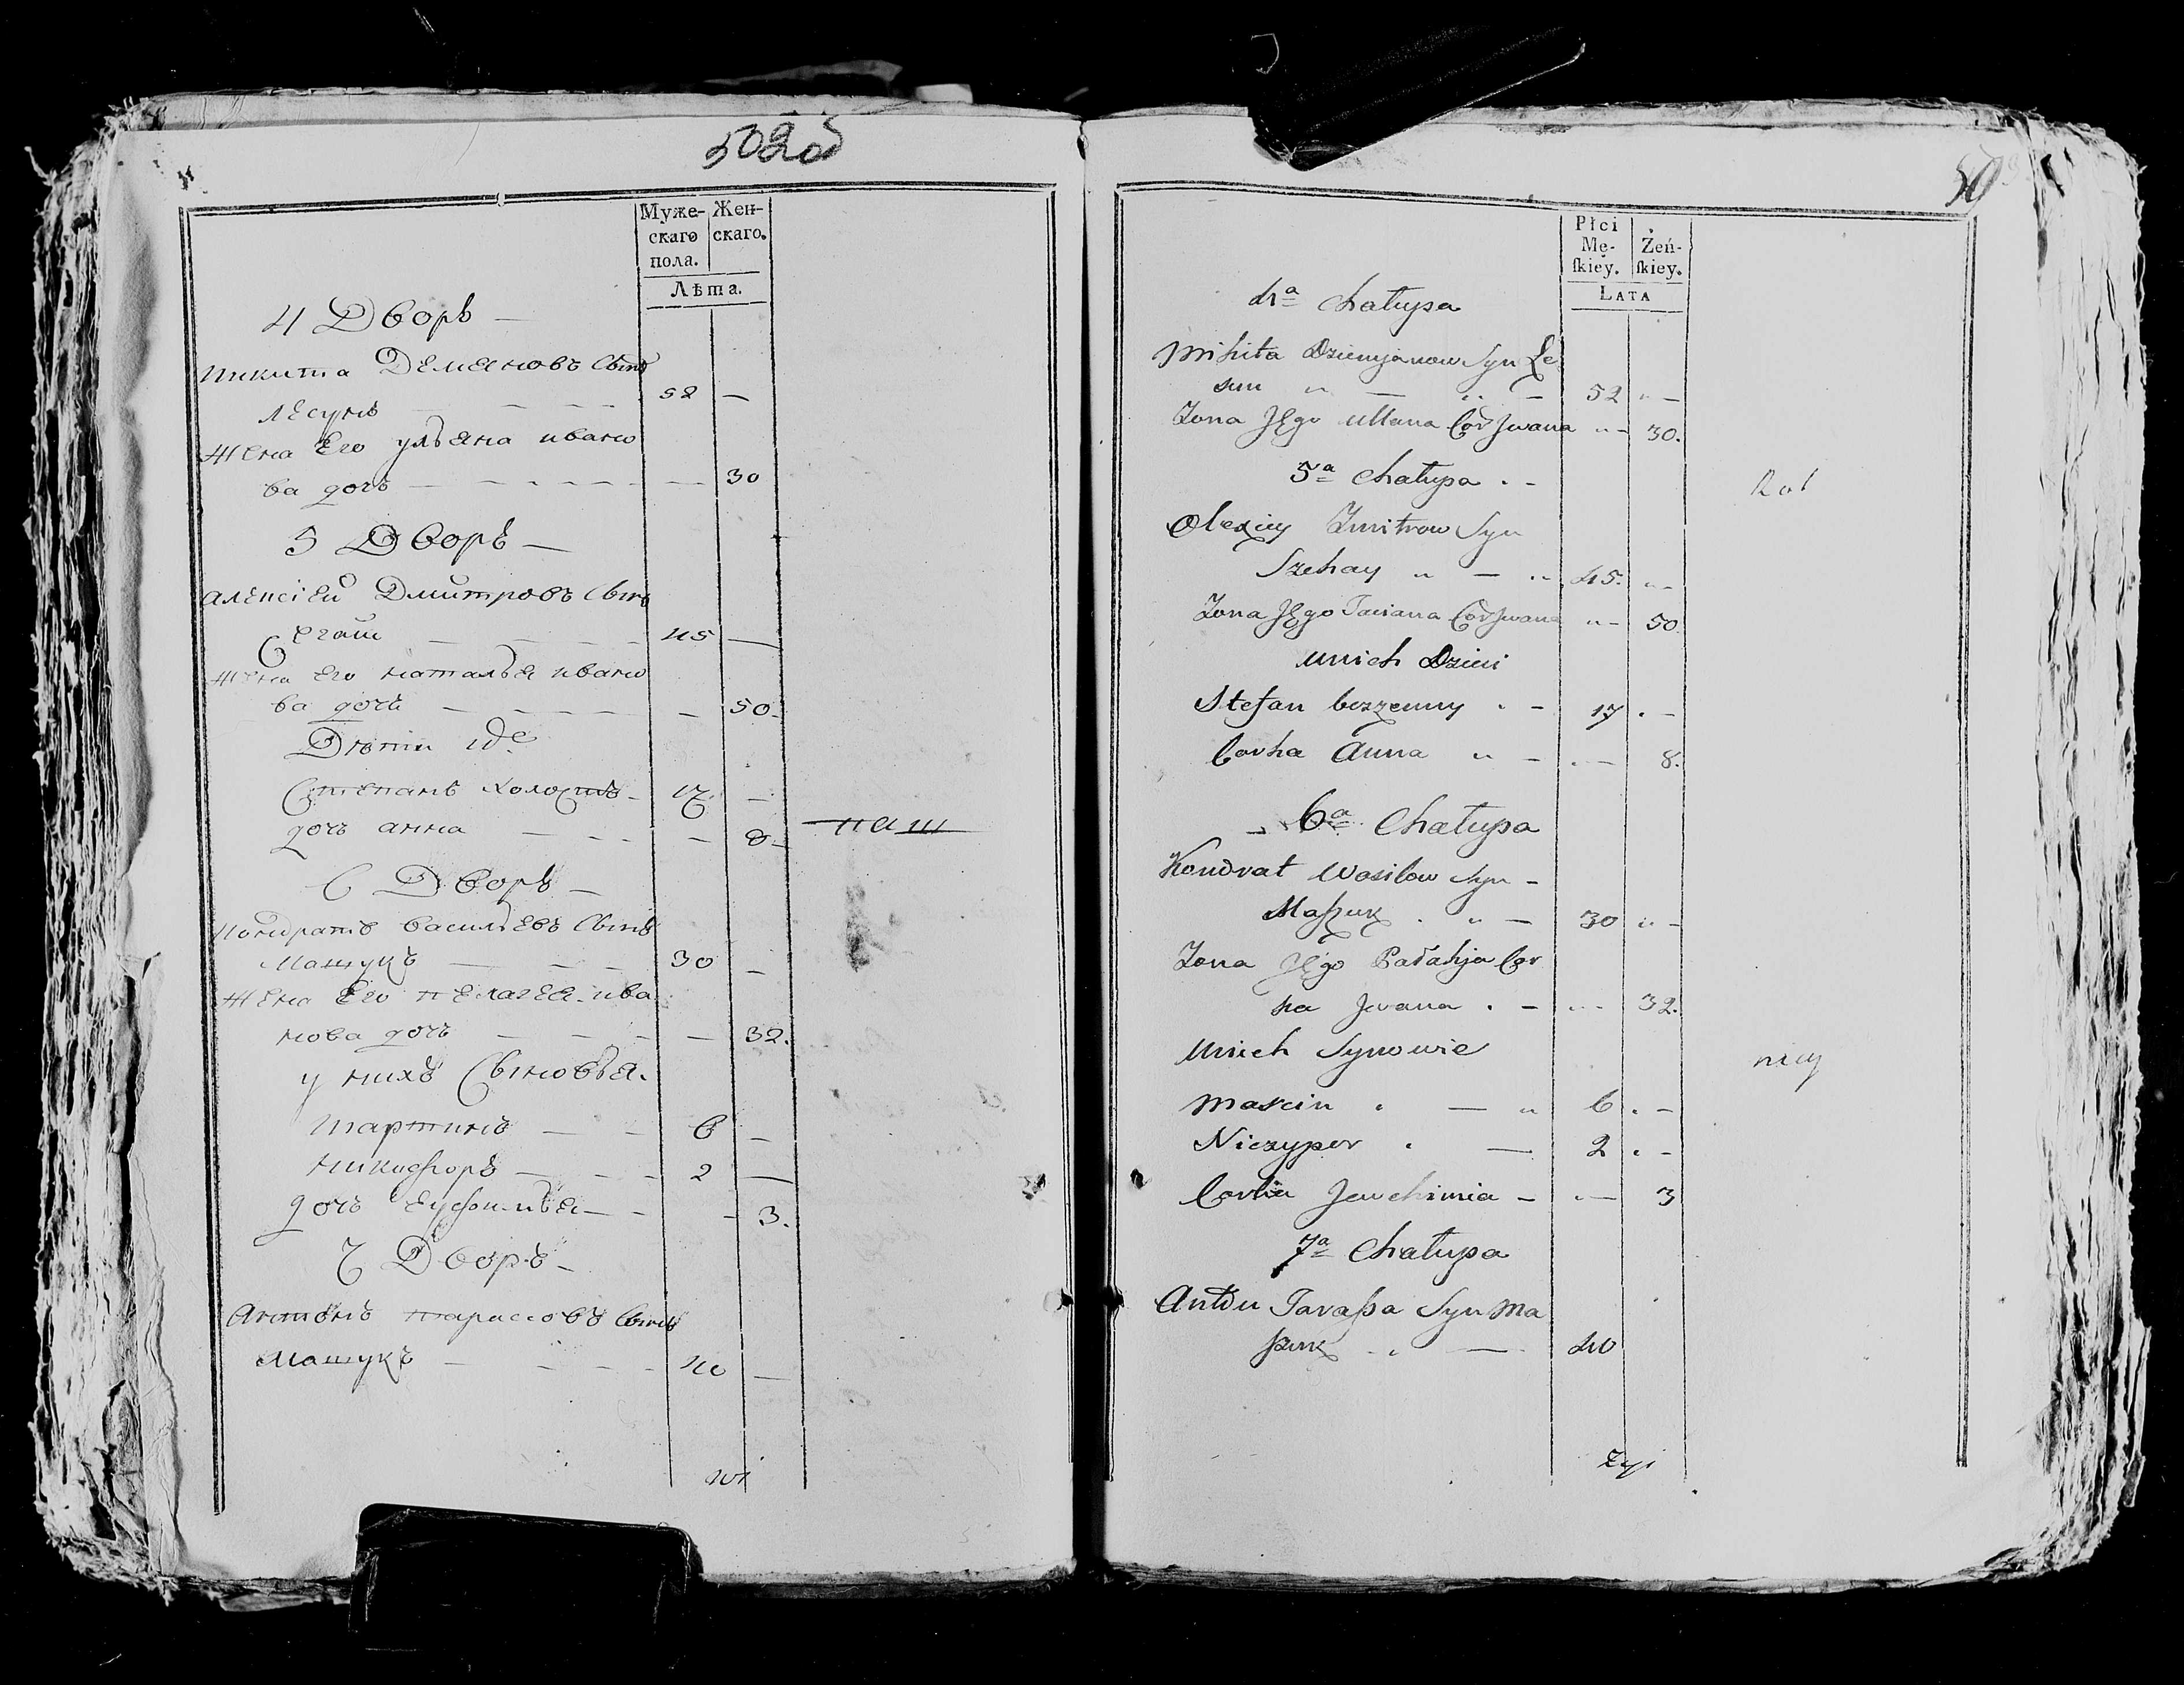 502об
Муже- Жен-
скаго скаго.
пола.
Лѣта.
4 Дворъ —
Никита Демяновъ Сынъ
лесунъ — — — 52 —
Жена Его ульяна ивано
ва дочь — — — — 30
5 Дворъ —
алексіей Дмитровъ Сынъ
— — — 45 —
Жена Его наталья ивано
ва дочь — — — — 50.
Дѣти
Степанъ холостъ — 17 —
дочь анна — — — 8 — паш
6 Дворъ —
Кондратъ васильевъ Сынъ
Машукъ — — — 30 —
Жена Его пелагея ива
нова дочь — — — — 32.
у нихъ Сыновья.
Мартинъ — — 6 —
никифоръ — — 2 —
дочь — — — 3.
7 Дворъ —
Антонъ тарассовъ Сынъ
Машукъ — — — 40 —
50
Płci
Mę- Żeń-
ſkiey. ſkiey.
LATA
4ᵃ Chałupa
Mikita Dziemjanow Syn Le
sun „ — „ — 52 „ —
Zona Jego Ullana Cor Jwana „ — 30.
5ᵃ Chałupa . — Rol
Olexiey Zmitrow Syn
Szehay „ — „ 45. „ —
Zona Jego Taciana Cor Jwana „ — 50
Unich Dzieci
Stefan bezzenny . — 17 . —
Corka Anna „ — . — 8.
6ᵃ Chałupa
Kondrat Wasilow Syn —
Maszuk . „ — 30 „ —
Zona Jego Pałahja Cor
ka Jwana . — „ — 32.
Unich Synowie nicy
Marcin . — „ 6 . —
Niczyper . — 2 . —
Corka Jewchimia — „ — 3
7ᵃ Chałupa
Anton Taraſsa Syn Ma
szuk „ — 40